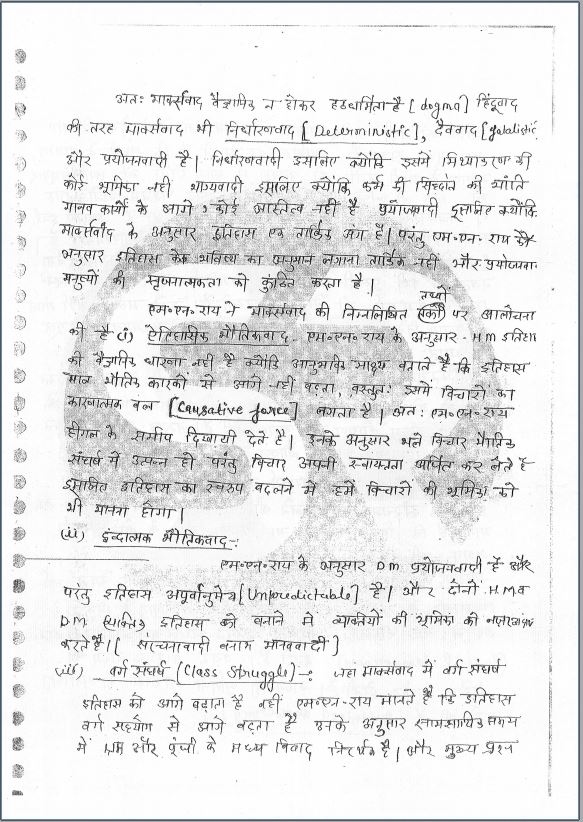 अतः मार्क्सवाद वैज्ञानिक न होकर हठधार्मिता है [dogma] हिंदूवाद
की तरह मार्क्सवाद भी निर्धारणवाद [Deterministic], दैववाद
और प्रयोजनवादी है। निर्धारणवादी इसलिए क्योंकि इसमें की
कोई भूमिका नहीं भाग्यवादी इसलिए क्योंकि कर्म के सिद्धांत की भाँति
मानव कार्यों के आगे कोई अस्तित्व नहीं है प्रयोजवादी इसलिए क्योंकि
मार्क्सवाद के अनुसार इतिहास एक तार्किक अंग है। परंतु एम॰एन॰ राय के
अनुसार इतिहास के भविष्य का अनुमान लगाना तार्किक नहीं और प्रयोजनवा-
मनुष्यों की सृजनात्मकता को कुंठित करता है।
एम॰एन॰ राय ने मार्क्सवाद की निम्नलिखित तथ्यों पर आलोचना
की है (i) ऐतिहासिक भौतिकवाद - एम॰एन॰ राय के अनुसार - H.M इतिहास
की वैज्ञानिक धारणा नहीं है क्योंकि आनुभविक साक्ष्य बताते है कि इतिहास
मात्र भौतिक कारकों से आगे नहीं बढ़ता, वस्तुतः इसमें विचारों का
कारणात्मक बल [Causative force] लगता है। अतः एम॰एन॰ राय
हीगल के समीप दिखायी देते है। उनके अनुसार भले विचार भौतिक
संघर्ष में उत्पन्न हो परंतु विचार अपनी स्वायत्तता अर्पित कर लेते है
इसलिए इतिहास का स्वरूप बदलने में हमें विचारों की भूमिका को
भी मानना होगा।
(ii) द्वंदात्मक भौतिकवाद -:
एम॰एन॰ राय के अनुसार D.M. प्रयोजनवादी है और
परंतु इतिहास अपूर्वानुमेय [Unpredictable] है। और दोनों H.M व
D.M. इतिहास को बनाने में व्यक्तियों की भूमिका को नजरअंदाज
करते है। [संरचनावादी बनाम मानववादी]
(iii) वर्ग संघर्ष (Class Struggle) -: जहां मार्क्सवाद में वर्ग संघर्ष
इतिहास को आगे बढ़ाता है वहीं एम॰एन॰ राय मानते है कि इतिहास
वर्ग सहयोग से आगे बढ़ता है उनके अनुसार समसामयिक समय
में श्रम और पूंजी के मध्य विवाद निरर्थक है। और मुख्य प्रश्न